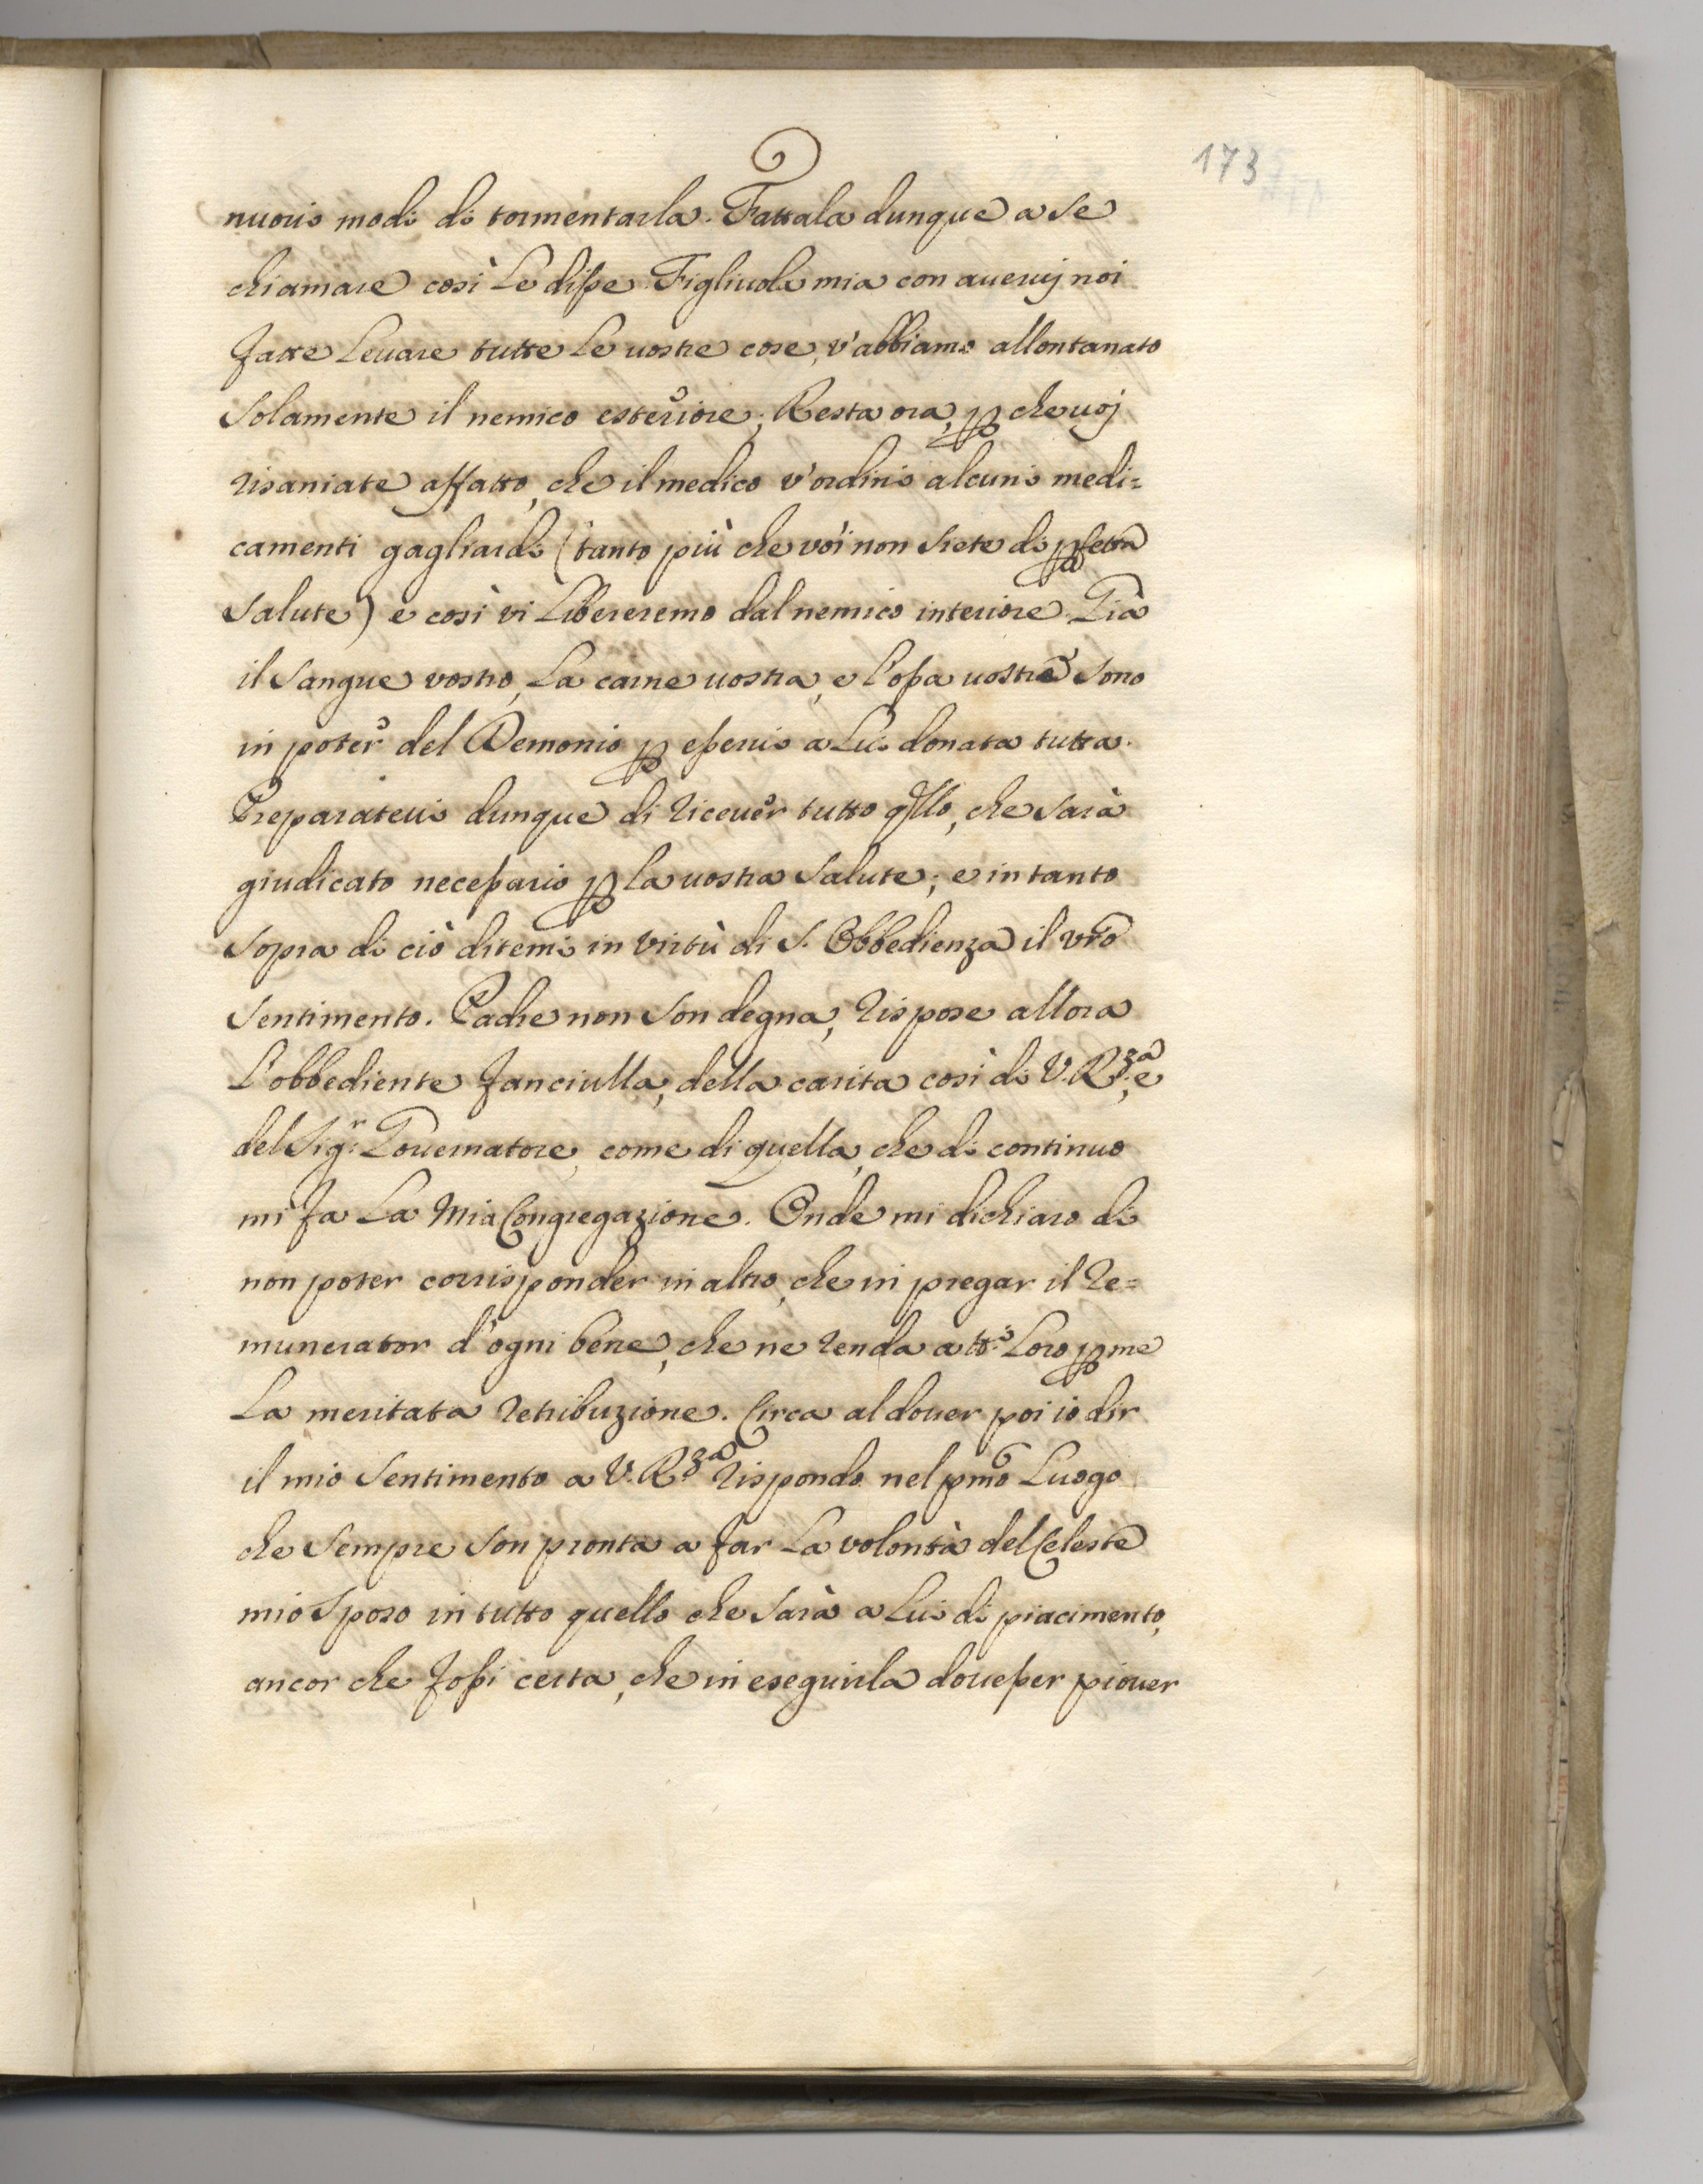 173
nuoui modi di tormentarla. Fattala dunque a se
chiamare così Le disse Figliuola mia con aueruj noi
fatte Leuare tutte Le uostre cose, v'abbiamo allontanato
solamente il nemico esteriore; Resta ora, ꝑ che uoj
risaniate affatto, che il medico v'ordini alcuni medi=
camenti gagliardi (tanto più che voi non siete di ꝑfetta
salute) e così vi Libereremo dal nemico interiore. Già
il sangue vostro, La carne uostra, e l'ossa uostre sono
in poter del Demonio ꝑ esserui a Lui donata tutta.
Preparateui dunque di riceuer tutto qllo, che sarà
giudicato necessario ꝑ la uostra salute; e in tanto
sopra di ciò ditemi in virtù di S. Obbedienza il vrō
sentimento. Padre non son degna, rispose allora
L'obbediente fanciulla, della carita così di V. R.za, e
del Sig.r Gouernatore, come di quella, che di continuo
mi fa La Mia Congregazione. Onde mi dichiaro di
non poter corrisponder in altro, che in pregar il Re=
munerator d'ogni bene, che ne renda a tt.i Loro ꝑ me
La meritata retribuzione. Circa al douer poi io dir
il mio sentimento a V. R.za rispondo nel pmō Luogo
che sempre son pronta a far La volontà del Celeste
mio Sposo in tutto quello che sarà a Lui di piacimento,
ancor che fossi certa, che in eseguirla douesser piouer